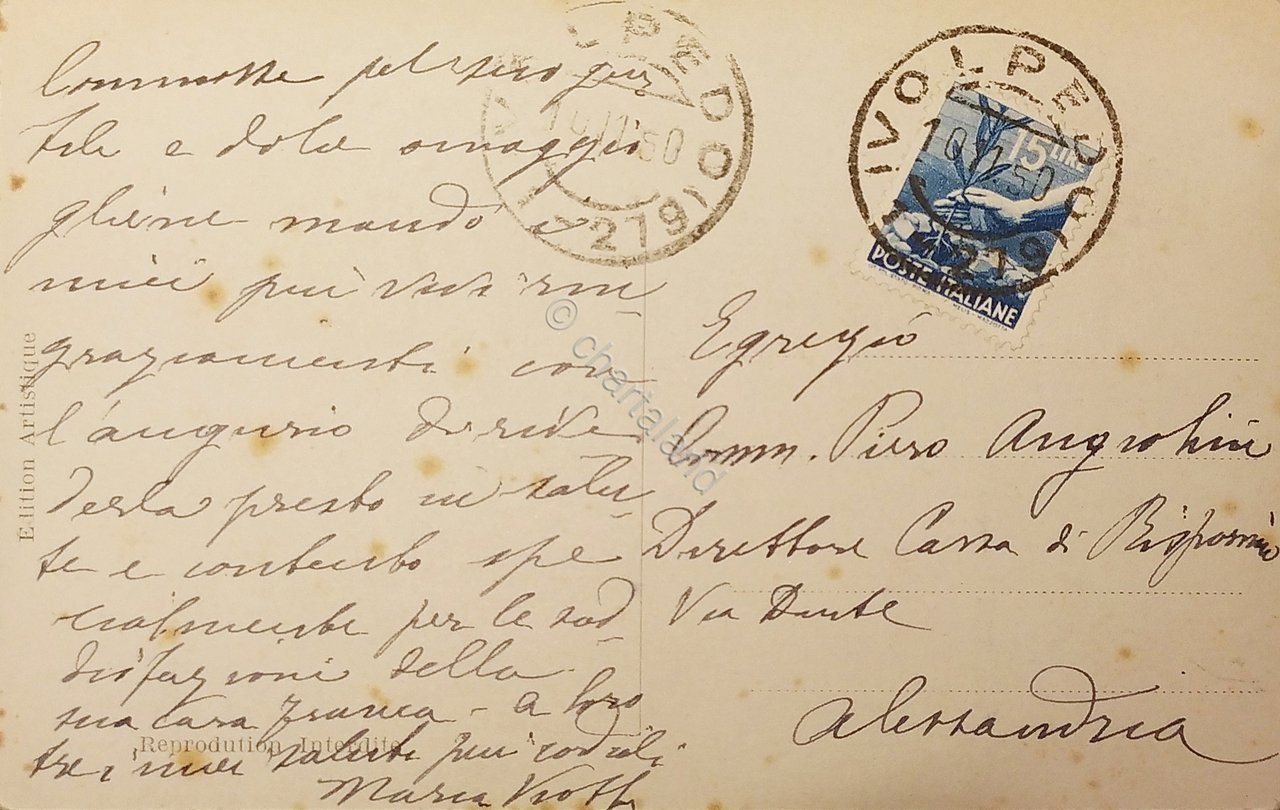 Commossa pel suo gen-
tile e dolce omaggio
gliene mando i
miei più vivi rin-
graziamenti con
l'augurio di rive
derla presto in salu-
te e contento spe
cialmente per le sod-
disfazioni della
sua cara Franca - a loro
tre i miei saluti più cordiali
Maria
Edition Artistique
Reprodution Interdite
VOLPEDO
219
VOLPEDO
50
219
15 LIRE
POSTE ITALIANE
Egregio
Comm. Piero
Direttore Cassa di Risparmio
Via Dante
Alessandria
© chartaland